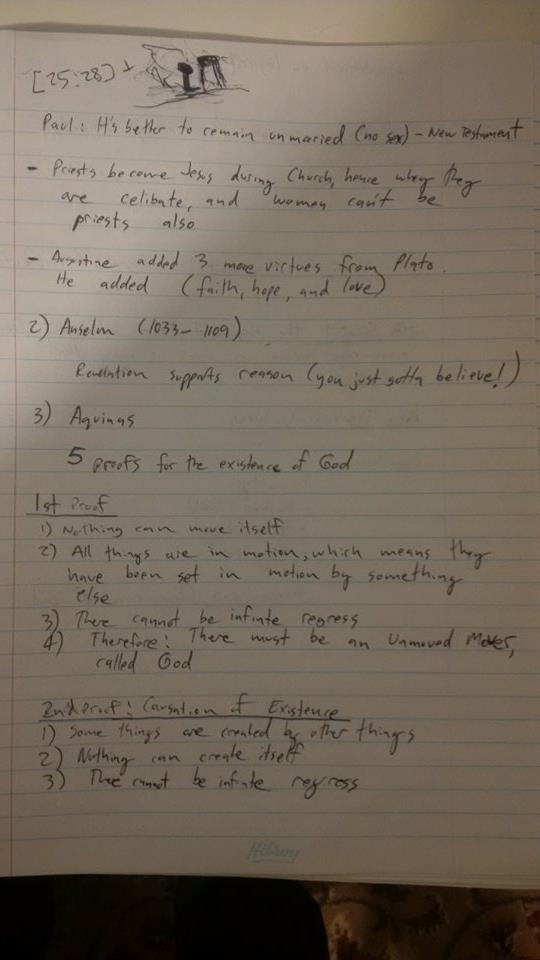 [25:28] +
Paul: It's better to remain unmarried (no sex) - New Testament
- Priests become Jesus during Church, hence why they
are celibate, and women can't be
priests also
- Augustine added 3 more virtues from Plato.
He added (faith, hope, and love)
2) Anselm (1033-1109)
Revelation supports reason (you just gotta believe!)
3) Aquinas
5 proofs for the existence of God
1st Proof
1) Nothing can move itself
2) All things are in motion, which means they
have been set in motion by something
else
3) There cannot be infinite regress
4) Therefore: There must be an Unmoved Mover,
called God
2nd Proof: Causation of Existence
1) Some things are created by other things
2) Nothing can create itself
3) There cannot be infinite regress
Hilroy